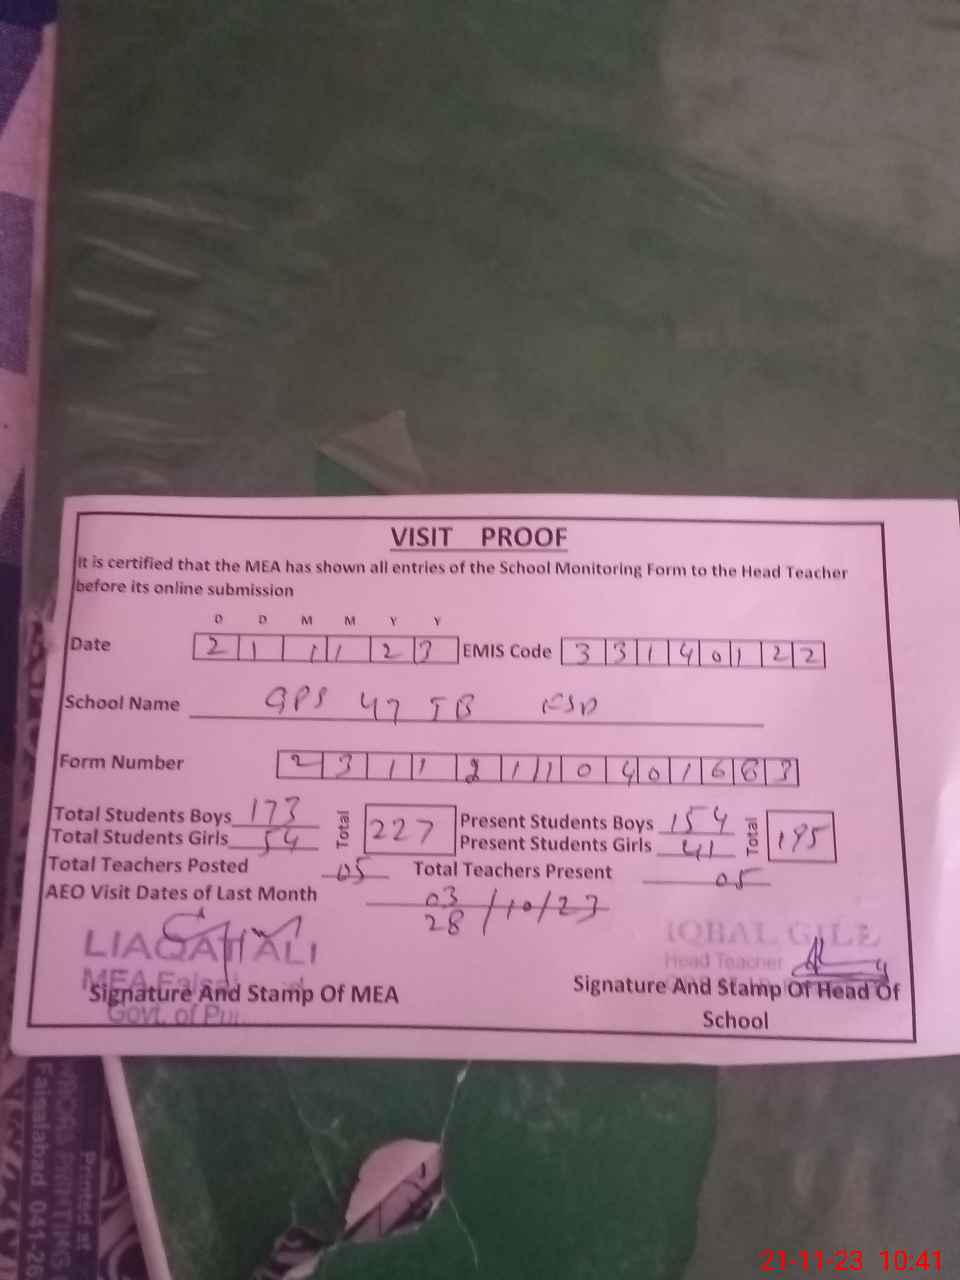 VISIT PROOF
It is certified that the MEA has shown all entries of the School Monitoring Form to the Head Teacher
before its online submission
D D M M Y Y
Date 21 11 23 EMIS Code 33140122
School Name GPS 47 JB FSD
Form Number 231121104016
Total Students Boys 173 Total 227 Present Students Boys 154 Total 195
Total Students Girls 54 Present Students Girls 41
Total Teachers Posted 05 Total Teachers Present 05
AEO Visit Dates of Last Month 03
28 /10/23
LIAQAT ALI IQBAL GILL
MEA Head Teacher
Signature And Stamp Of MEA Signature And Stamp Of Head Of
Govt. of
School
Printed at
PRINTING
Faisalabad 041-26
21-11-23 10:41